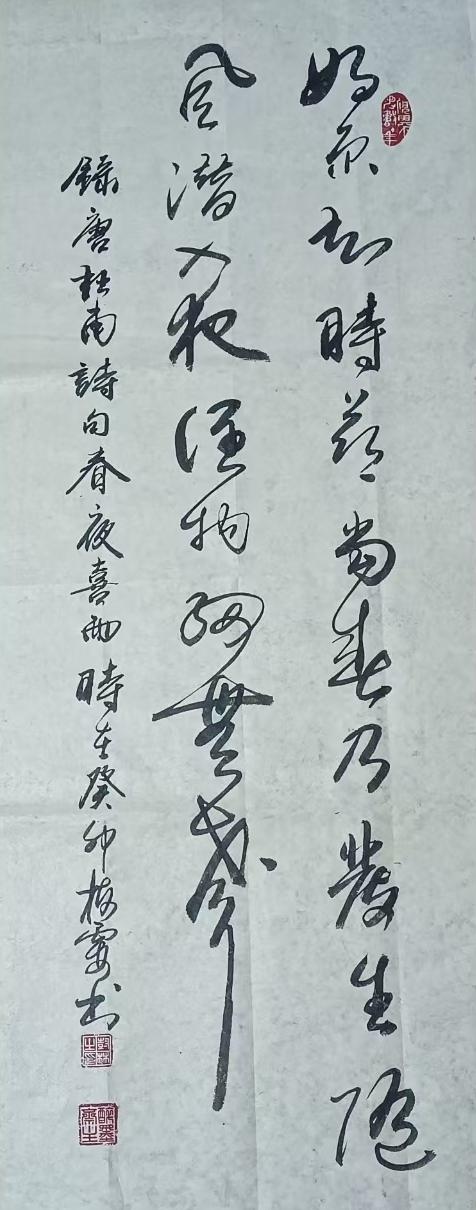 好雨知時節當春乃發生隨
風潛入夜潤物細無聲
錄唐杜甫詩句春夜喜雨時在癸卯書